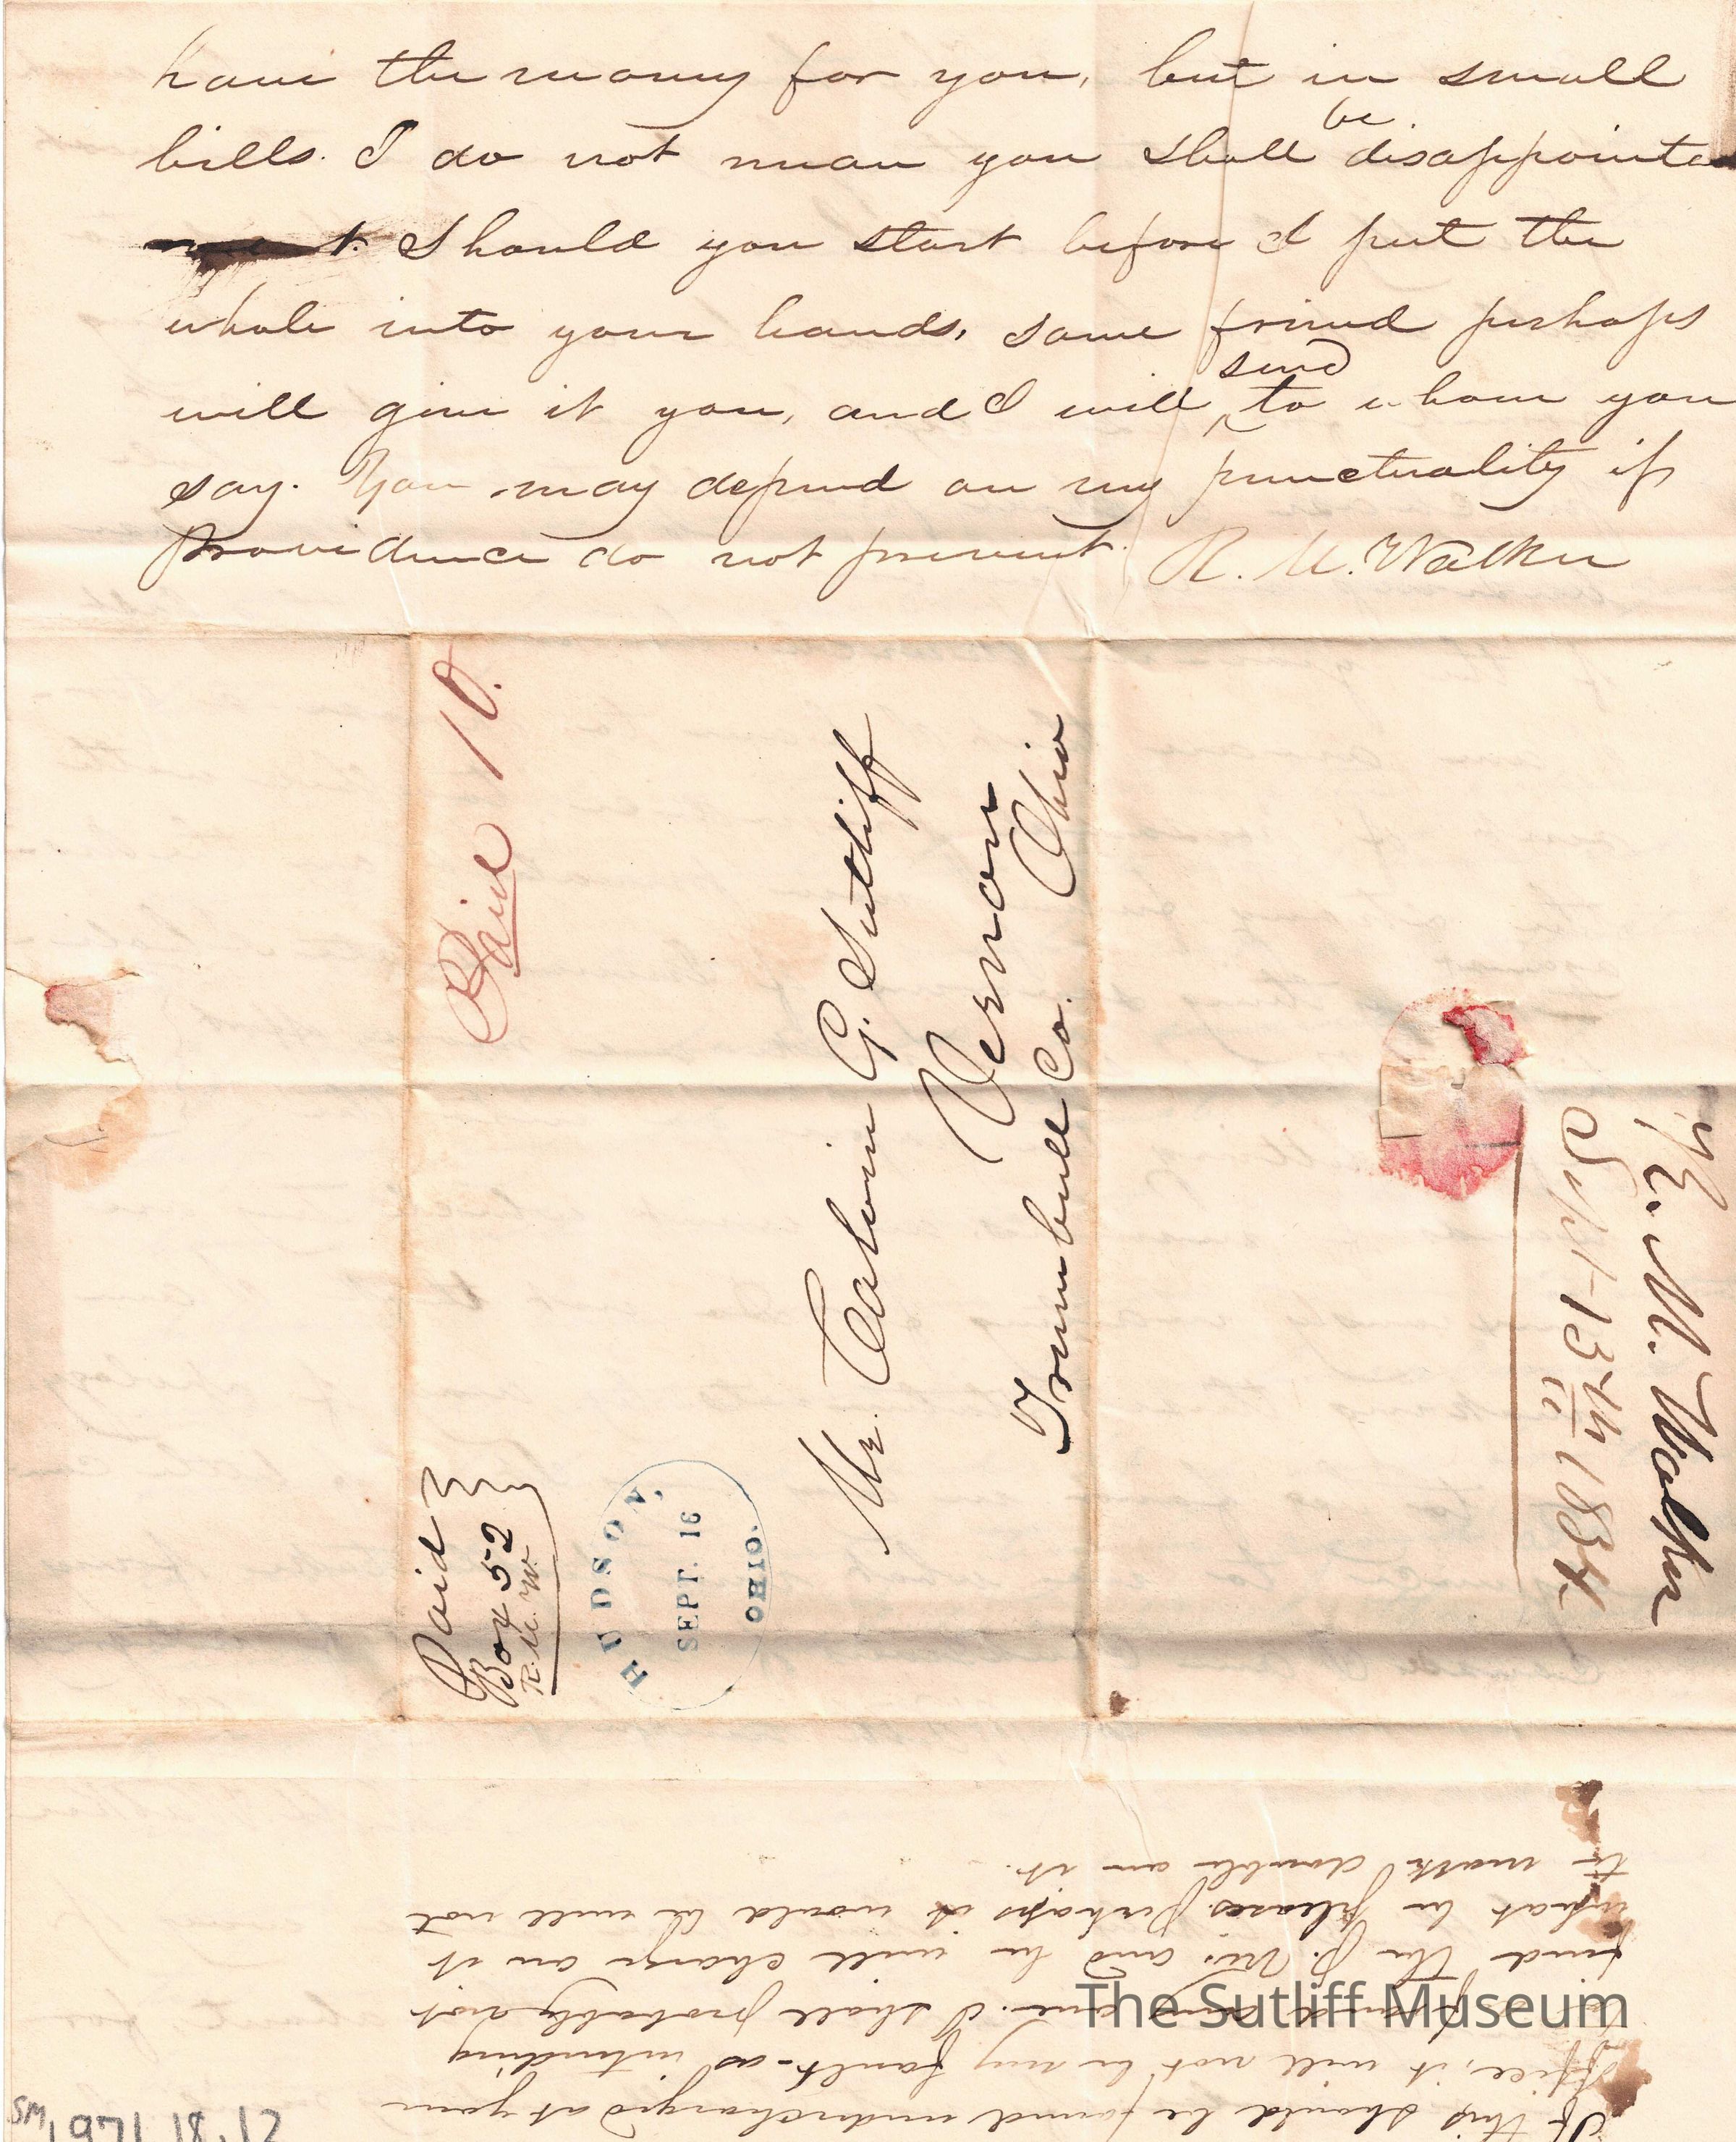 have the money for you, but in small
bills. I do not mean you shall be disappointed
Should you start before I put the
whole into your hands, some friend perhaps
will give it you, and I will send to whom you
say. You may depend on my punctuality if
Providence do not prevent. R. M. Walker
Paid 10.
Paid
Box 52
R. M. W.
HUDSON,
SEPT. 16
OHIO.
Mr. Calvin G. Sutliff
Vernon
Trumbull Co. Ohio
R. M. Walker
Sept 13th 1834
If this should be found undercharged at your
office, it will not be my fault as intending
I shall probably not
find the P. M. and he will charge on it
what he pleases. Perhaps it would be well not
to mark double on it.
The Sutliff Museum
SM 1971.18.12